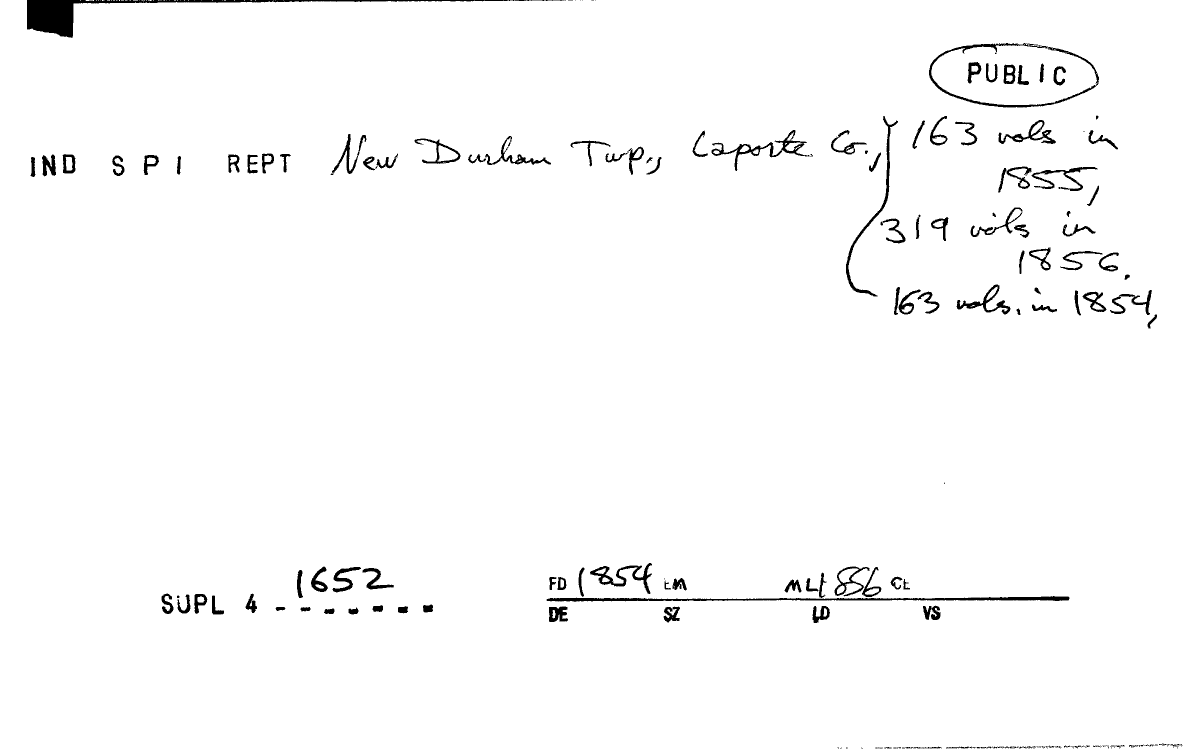 PUBLIC
IND S P I REPT New Durham Twp., Laporte Co., 163 vols in
1855,
319 vols in
1856.
163 vols. in 1854,
SUPL 4 - 1652
FD 1854 EM ML 1856 CE
DE SZ LD VS